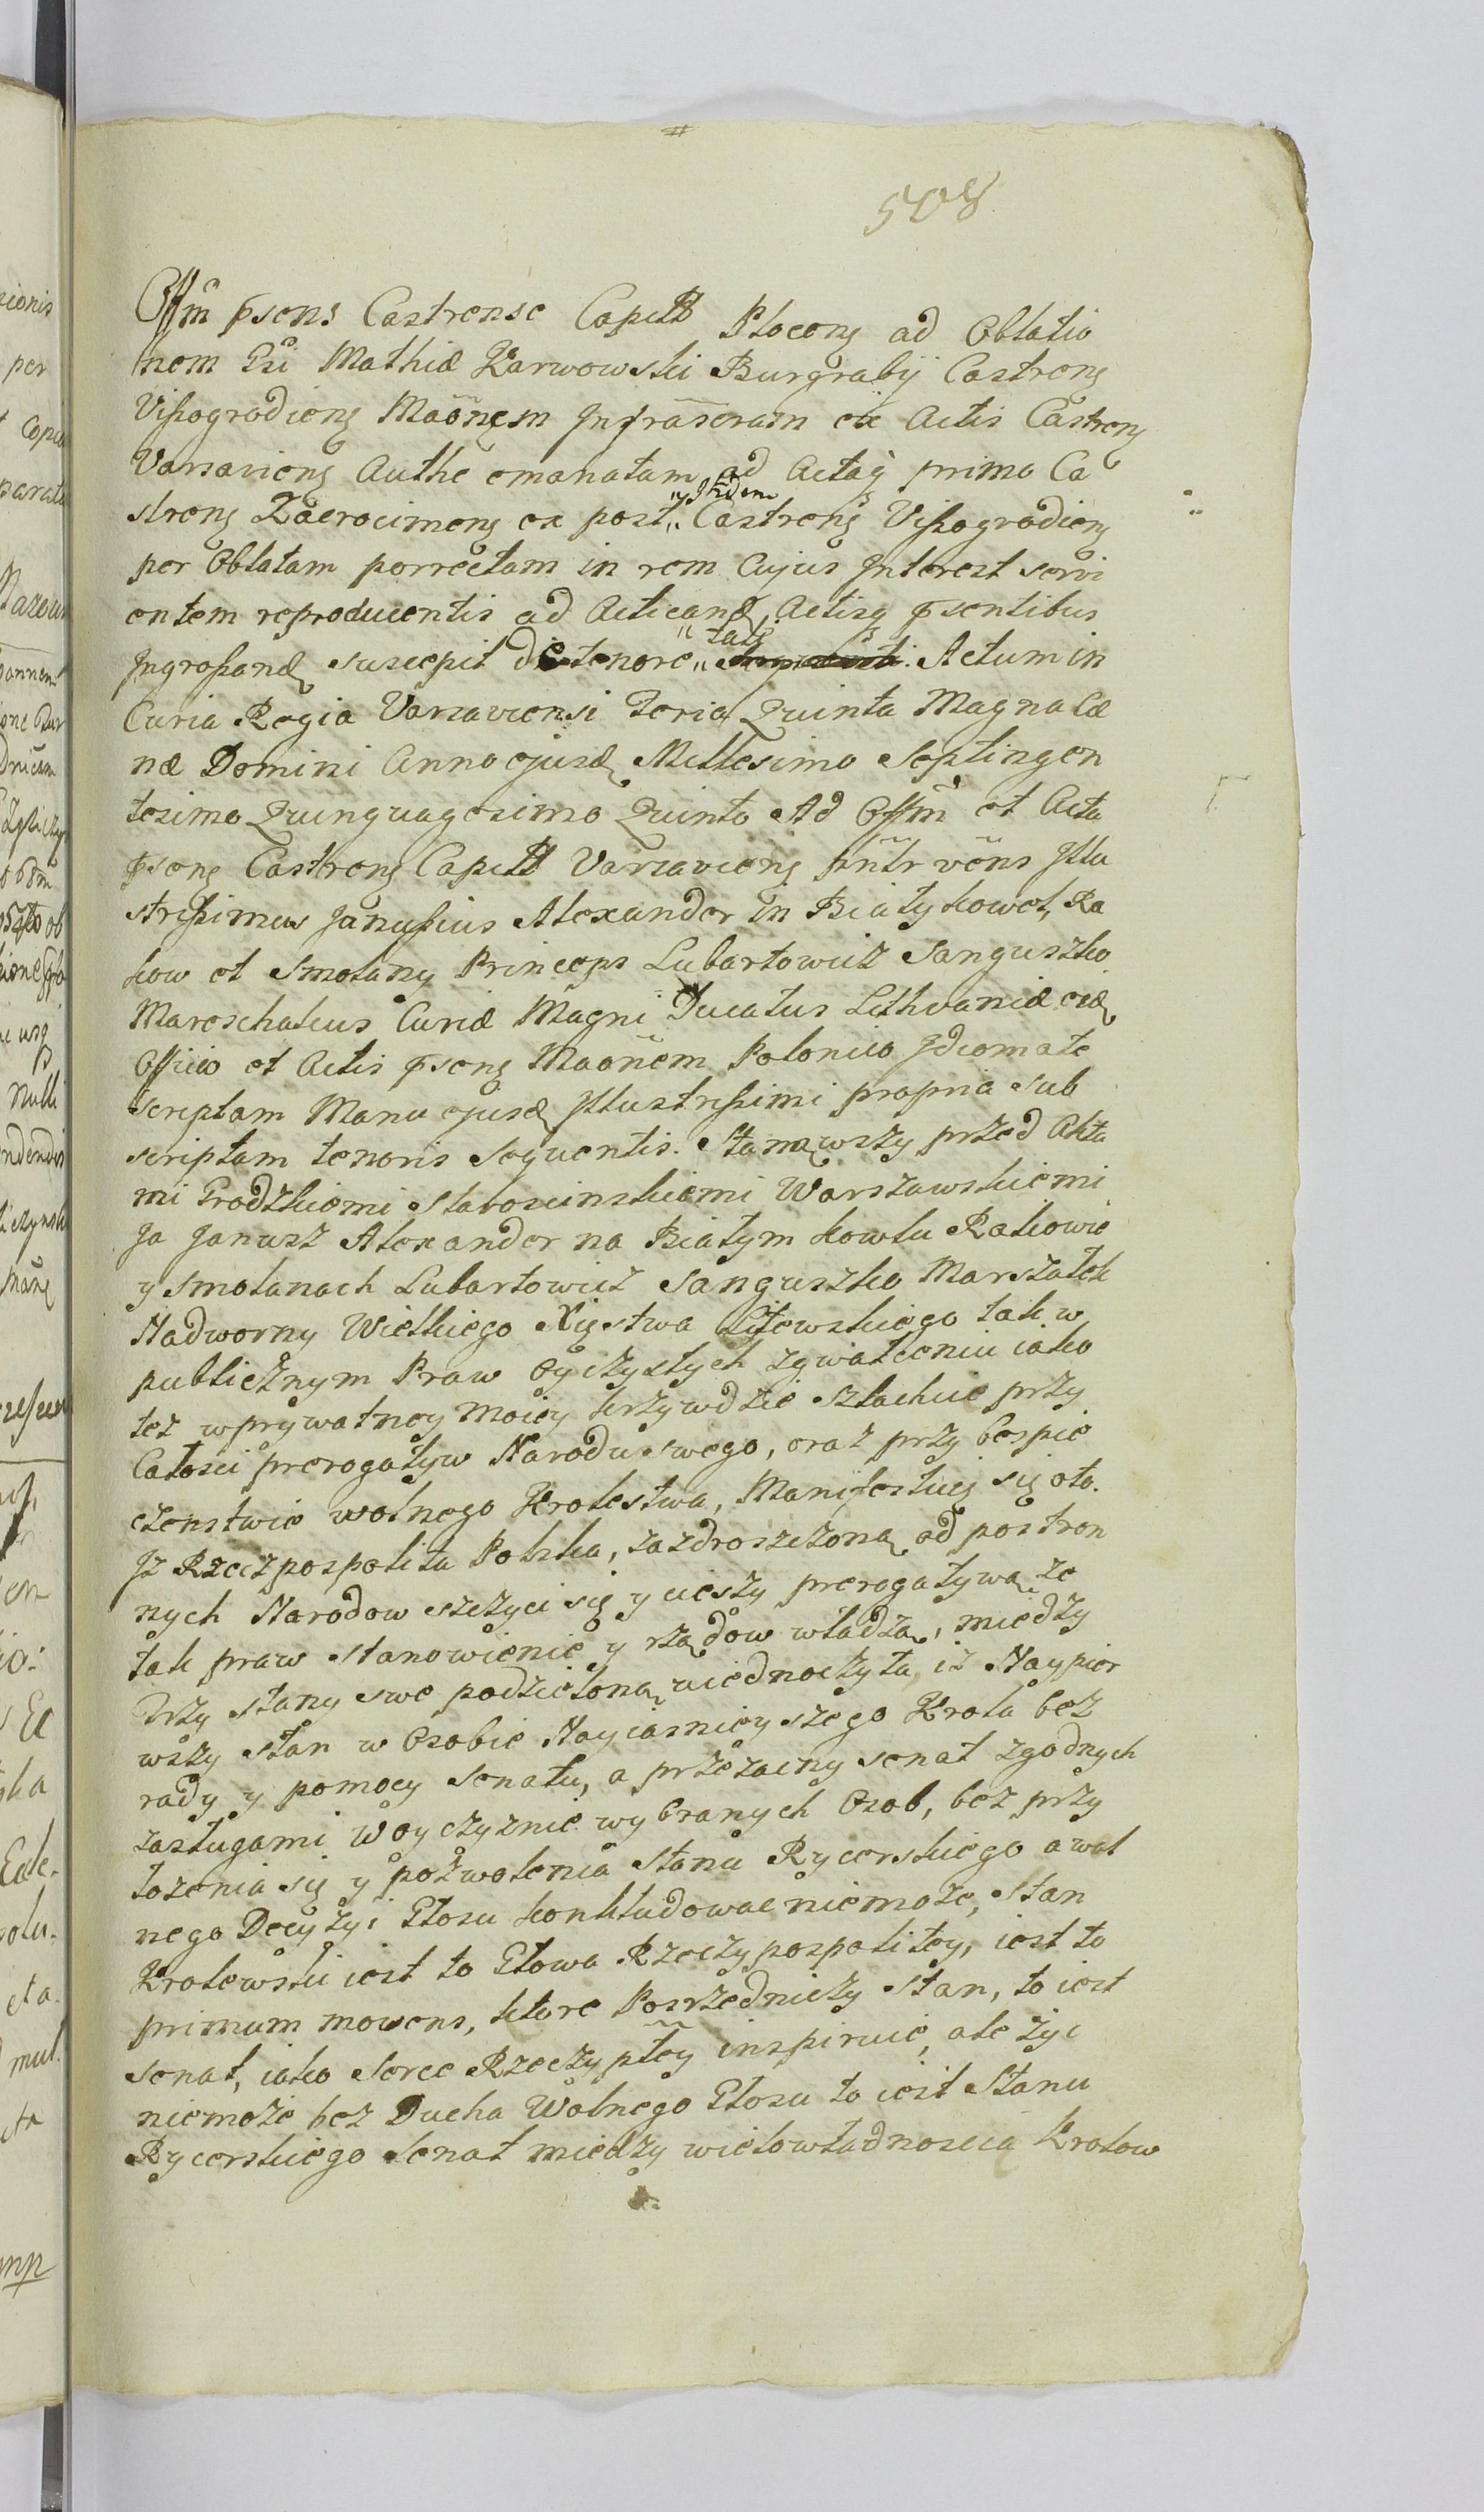 508
Offm psens Castrense Capitt Plocens ad Oblatio
nem Gsi Mathiæ Karwowski Burgrabij Castrens
Vissogrodiens Maonem Infrascram ex Actis Castrens
Varsaviens Authe emanatam, ad Actaq primo Ca
strens Zacrocimens ex post „ Itidem „ Castrens Vissogrodiens
per Oblatam porrectam in rem Cujus Interest servi
entem reproducentis ad Acticand, Actisq psentibus
Ingrossand suscepit de tenore „ tali. Actum in
Curia Regia Varsaviensi Feria Quinta Magna Cæ
næ Domini Anno ejusd Millesimo Septingen
tesimo Quinquagesimo Quinto Ad Offm et Acta
psens Castrens Capitt Varsaviens pnltr vens Illu
strissimus Janussius Alexander in Biały kowel, Ra
kow et Smolany Princeps Lubartowicz Sanguszko
Mareschalcus Curiæ Magni Ducatus Lithvaniæ eid
Officio et Actis psens Maonem Polonico Idiomate
scriptam Manu ejusd Illustrissimi propria sub
scriptam tenoris sequentis. Stanąwszy przed Akta
mi Grodzkiemi Staroscinskiemi Warszawskiemi
Ja Janusz Alexander na Białym kowlu Rakowie
y Smolanach Lubartowicz Sanguszko Marszałek
Nadworny Wielkiego Xięstwa Litewskiego tak w
publicznym Praw Oyczystych zgwałceniu iako
tez wprywatney moiey krzywdzie szlachcic przy
Całosci prerogatyw Narodu swego, oraz przy bespie
czenstwie wolnego Krolestwa, Manifestuię się oto.
Iz Rzeczpospolita Polska, zazdroszczoną od postron
nych Narodow szczyci się y cieszy prerogatywą ze
tak praw stanowienie y rządow władzą, między
Trzy stany swe podzieloną uiednoczyła, iz Naypier
wszy stan w Osobie Nayiasnieyszego Krola bez
rady y pomocy Senatu, a przezacny senat zgodnych
zasługami w oyczyznie wybranych Osob, bez przy
łozenia się y pozwolenia Stanu Rycerskiego a wol
nego Decyzyi Głosu konkludowac niemoze, Stan
Krolewski iest to Głowa Rzeczypospolitey, iest to
primum movens, ktore Posrzedniczy Stan, to iest
senat, iako Serce Rzeczyptey inspiruie, ale zyc
niemoze bez Ducha Wolnego Głosu to iest Stanu
Rycerskiego Senat miedzy wielowładnoscią Krolow